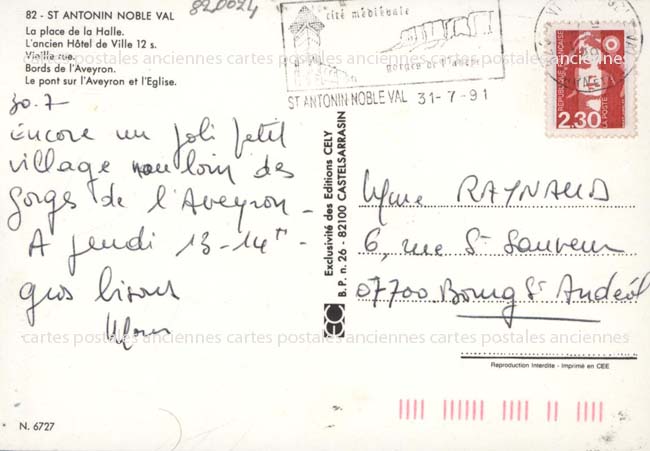 82 - ST ANTONIN NOBLE VAL
La place de la Halle.
L'ancien Hôtel de Ville 12 s.
Vieille rue.
Bords de l'Aveyron.
Le pont sur l'Aveyron et l'Eglise.
820024
cité médiévale
gorges de l'aveyron
ST ANTONIN NOBLE VAL 31-7-91
REPUBLIQUE FRANÇAISE
LA POSTE
2,30
30.7
Encore un joli petit
village non loin des
gorges de l'Aveyron -
A jeudi 13-14h
gros bisous
Exclusivité des Editions CELY
B.P. n. 26 - 82100 CASTELSARRASIN
Mme RAYNAUD
6, rue St Sauveur
07700 Bourg St Andéol
cartes postales anciennes cartes postales anciennes cartes postales anciennes
Reproduction Interdite - Imprimé en CEE
N. 6727